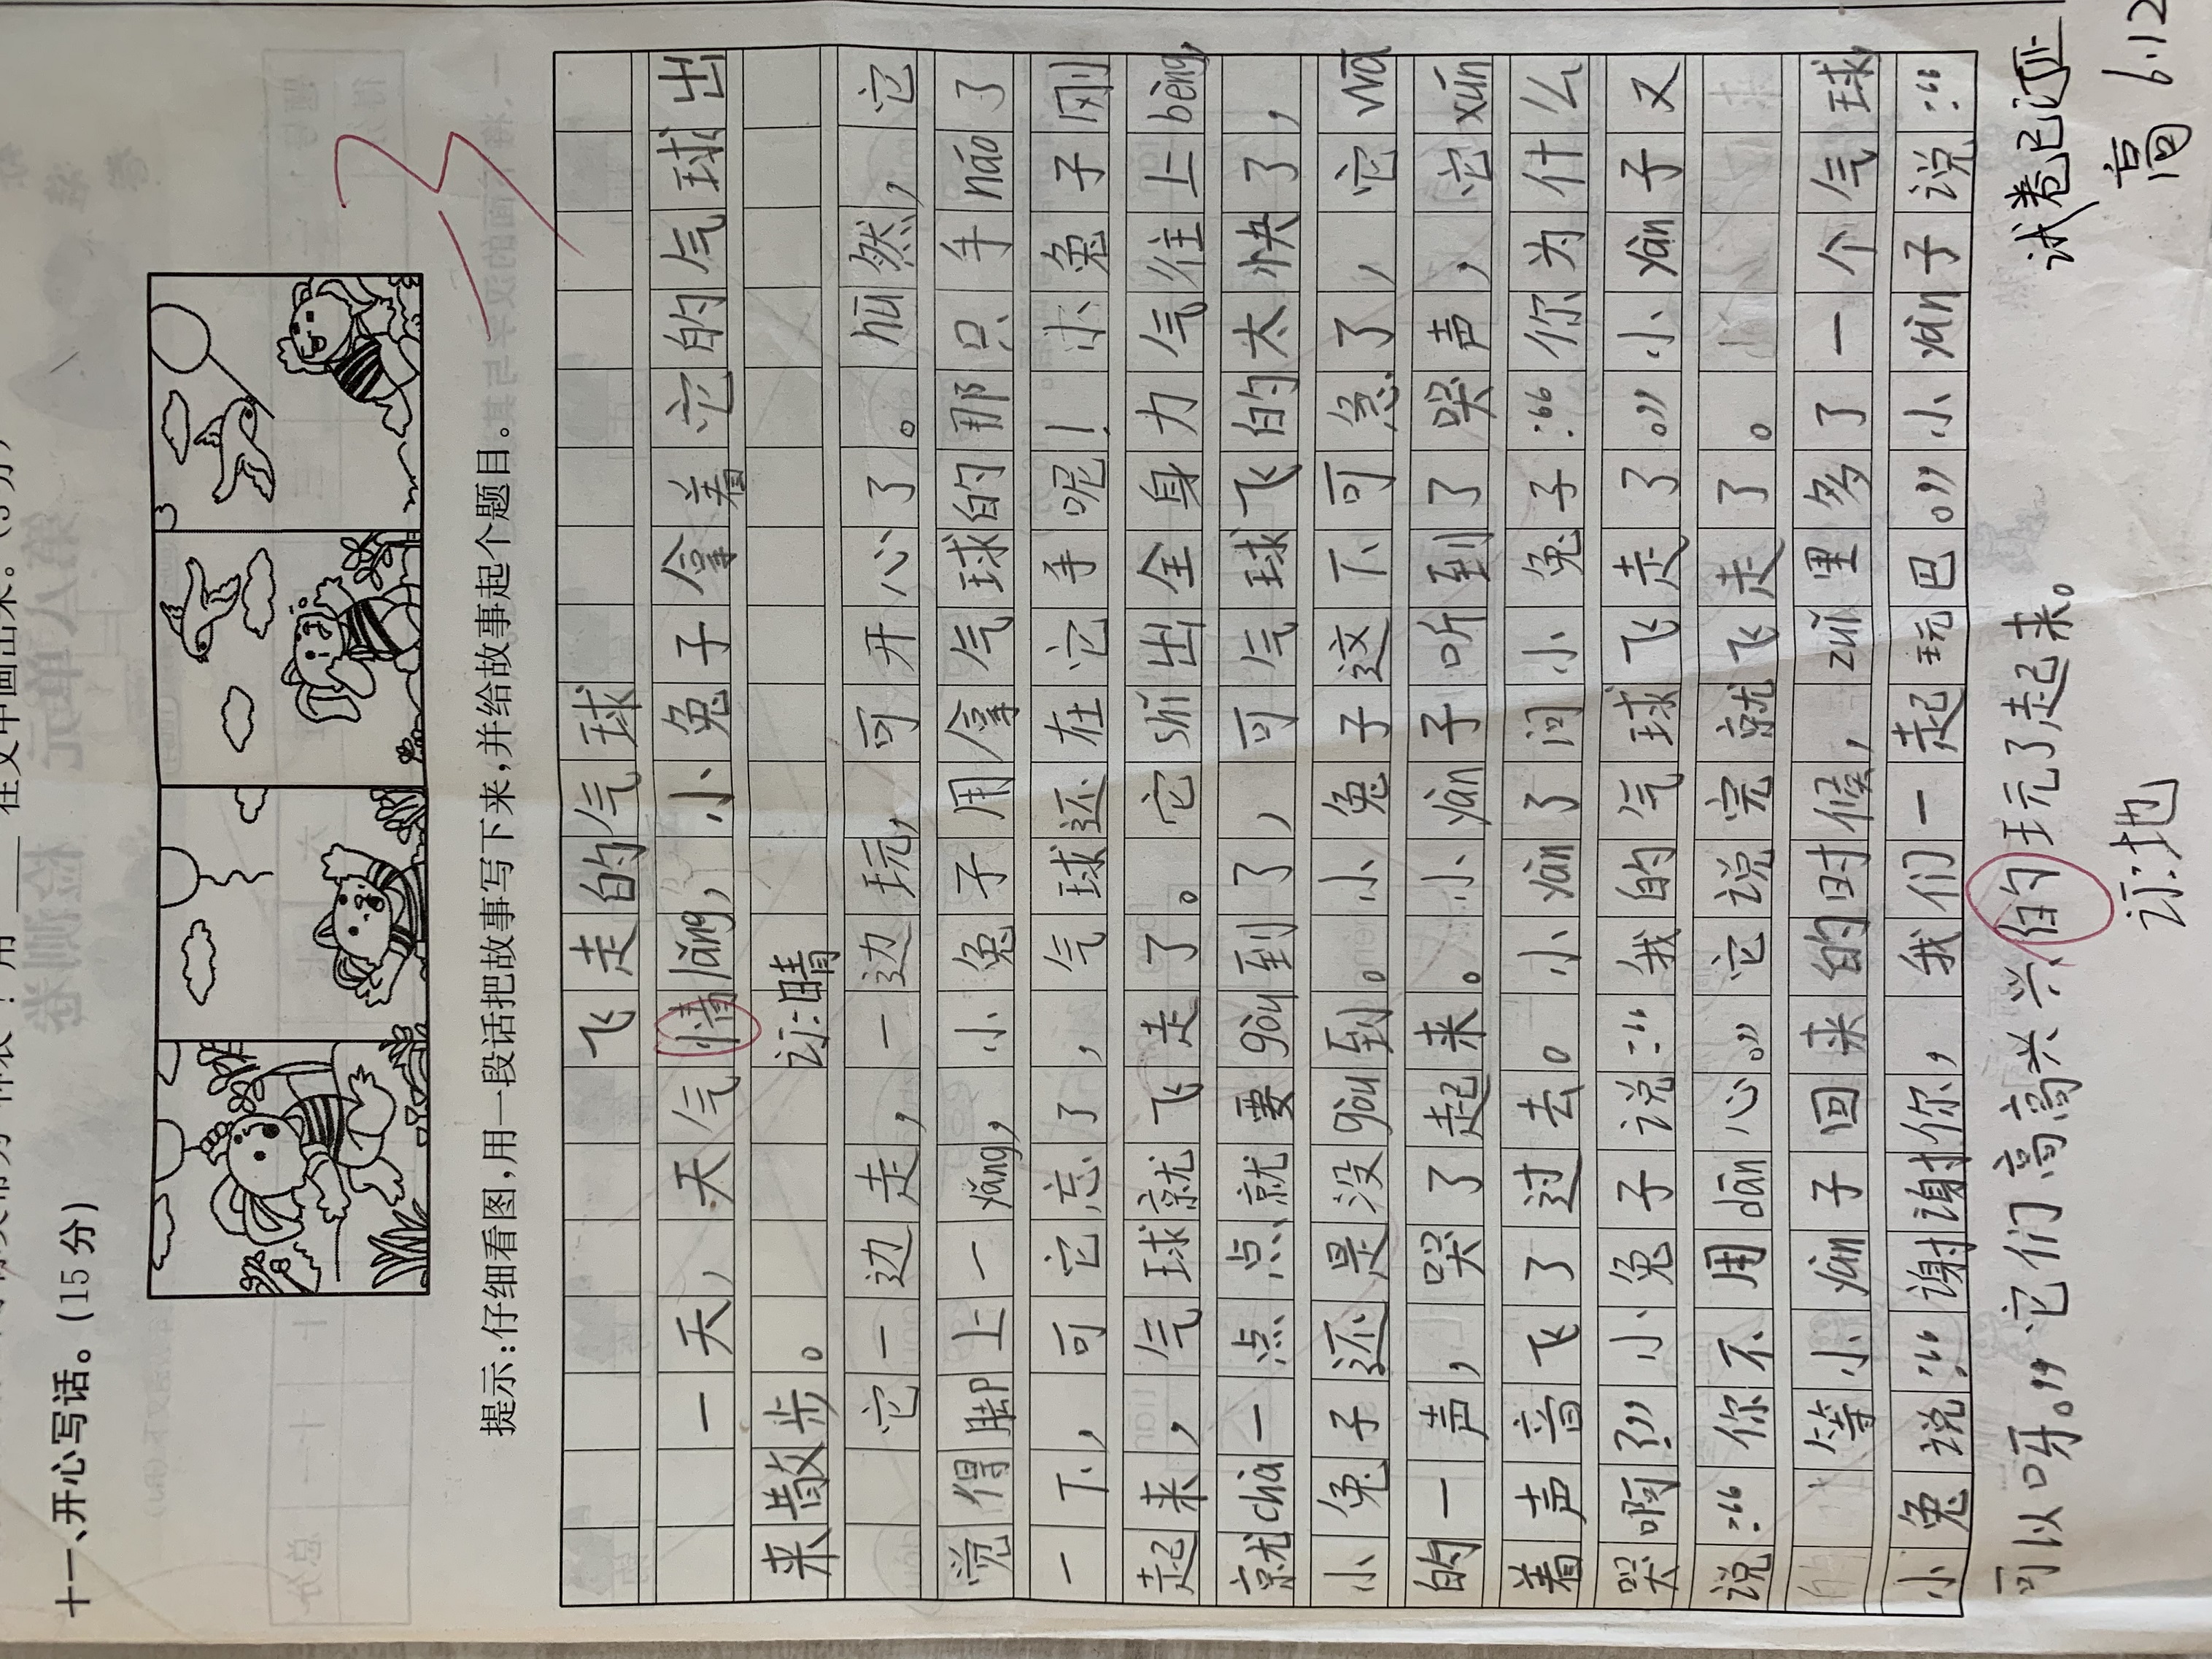 十一、开心写话。(15分)
提示:仔细看图,用一段话把故事写下来,并给故事起个题目。
飞走的气球
一天,天气情lǎng,小兔子拿着它的气球出
来散步。
订:晴
它一边走,一边玩,可开心了。hū然,它
觉得脚上一yǎng,小兔子用拿气球的那只手náo了
一下,可它忘了,气球还在它手呢!小兔子刚
起来,气球就飞走了。它shǐ出全身力气往上bèng,
就chà一点点就要gòu到了,可气球飞的太快了,
小兔子还是没gòu到。小兔子这下可急了,它wā
的一声,哭了起来。小yàn子听到了哭声,它xún
着声音飞了过去。小yàn了问小兔子:“你为什么
哭啊?”小兔子说:“我的气球飞走了。”小yàn子又
说:“你不用dān心。”它说完就飞走了。
等小yàn子回来的时候,zuǐ里多了一个气球,
小兔说:“谢谢你,我们一起玩巴。”小yàn子说:“
可以呀。”它们高高兴兴的玩了起来。
订:地
试卷已订正
高 6.12